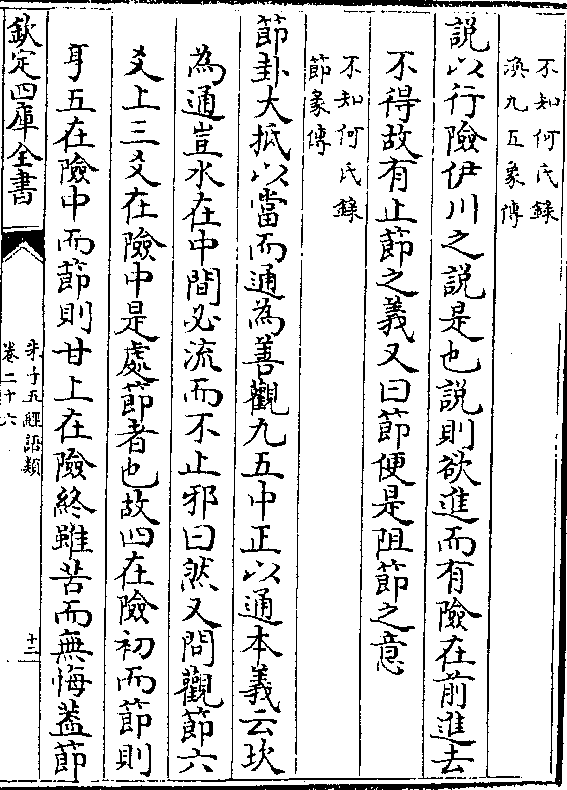 不知何氏錄
渙九五象傳
說以行險伊川之說是也說則欲進而有險在前進去
不得故有止節之義又曰節便是阻節之意
不知何氏錄
節彖傳
節卦大抵以當而通為善觀九五中正以通本義云坎
為通豈水在中間必流而不止邪曰然又問觀節六
爻上三爻在險中是處節者也故四在險初而節則
亨五在險中而節則甘上在險終雖苦而無悔蓋節
欽定四庫全書
朱子五經語類
卷二十六
十三